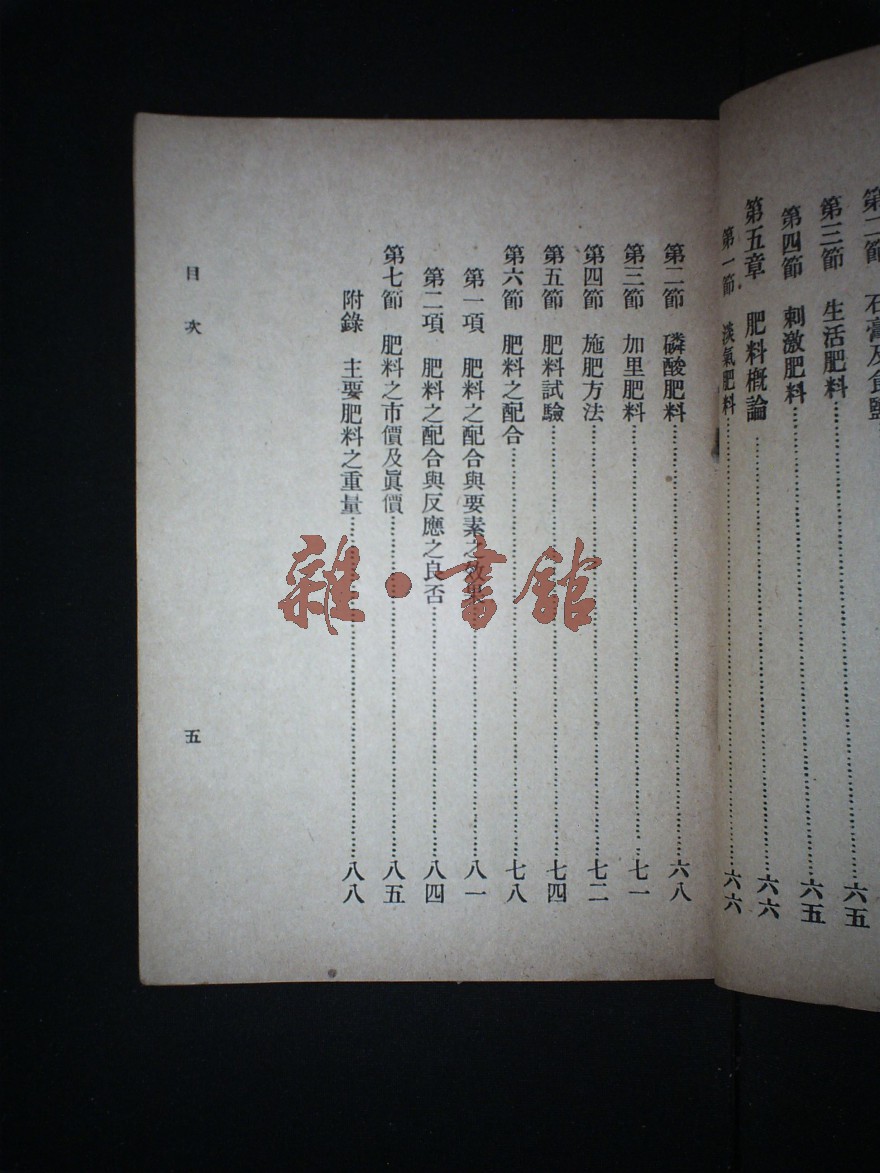 石膏及食鹽
第三節 生活肥料……六五
第四節 刺激肥料……六五
第五章 肥料概論……六六
第一節 淡氣肥料……六六
第二節 磷酸肥料……六八
第三節 加里肥料……七一
第四節 施肥方法……七二
第五節 肥料試驗……七四
第六節 肥料之配合……七八
第一項 肥料之配合與要素之效果……八一
第二項 肥料之配合與反應之良否……八四
第七節 肥料之市價及眞價……八五
附錄 主要肥料之重量……八八
目次
五
雜·書館